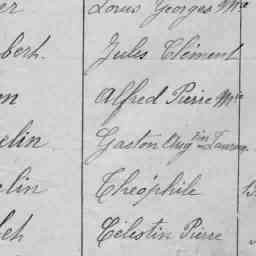 er Louis Georges Mie
bert. Jules Clément
on Alfred Pierre Mie
elin Gaston Aug
elin Théophile
Célestin Pierre